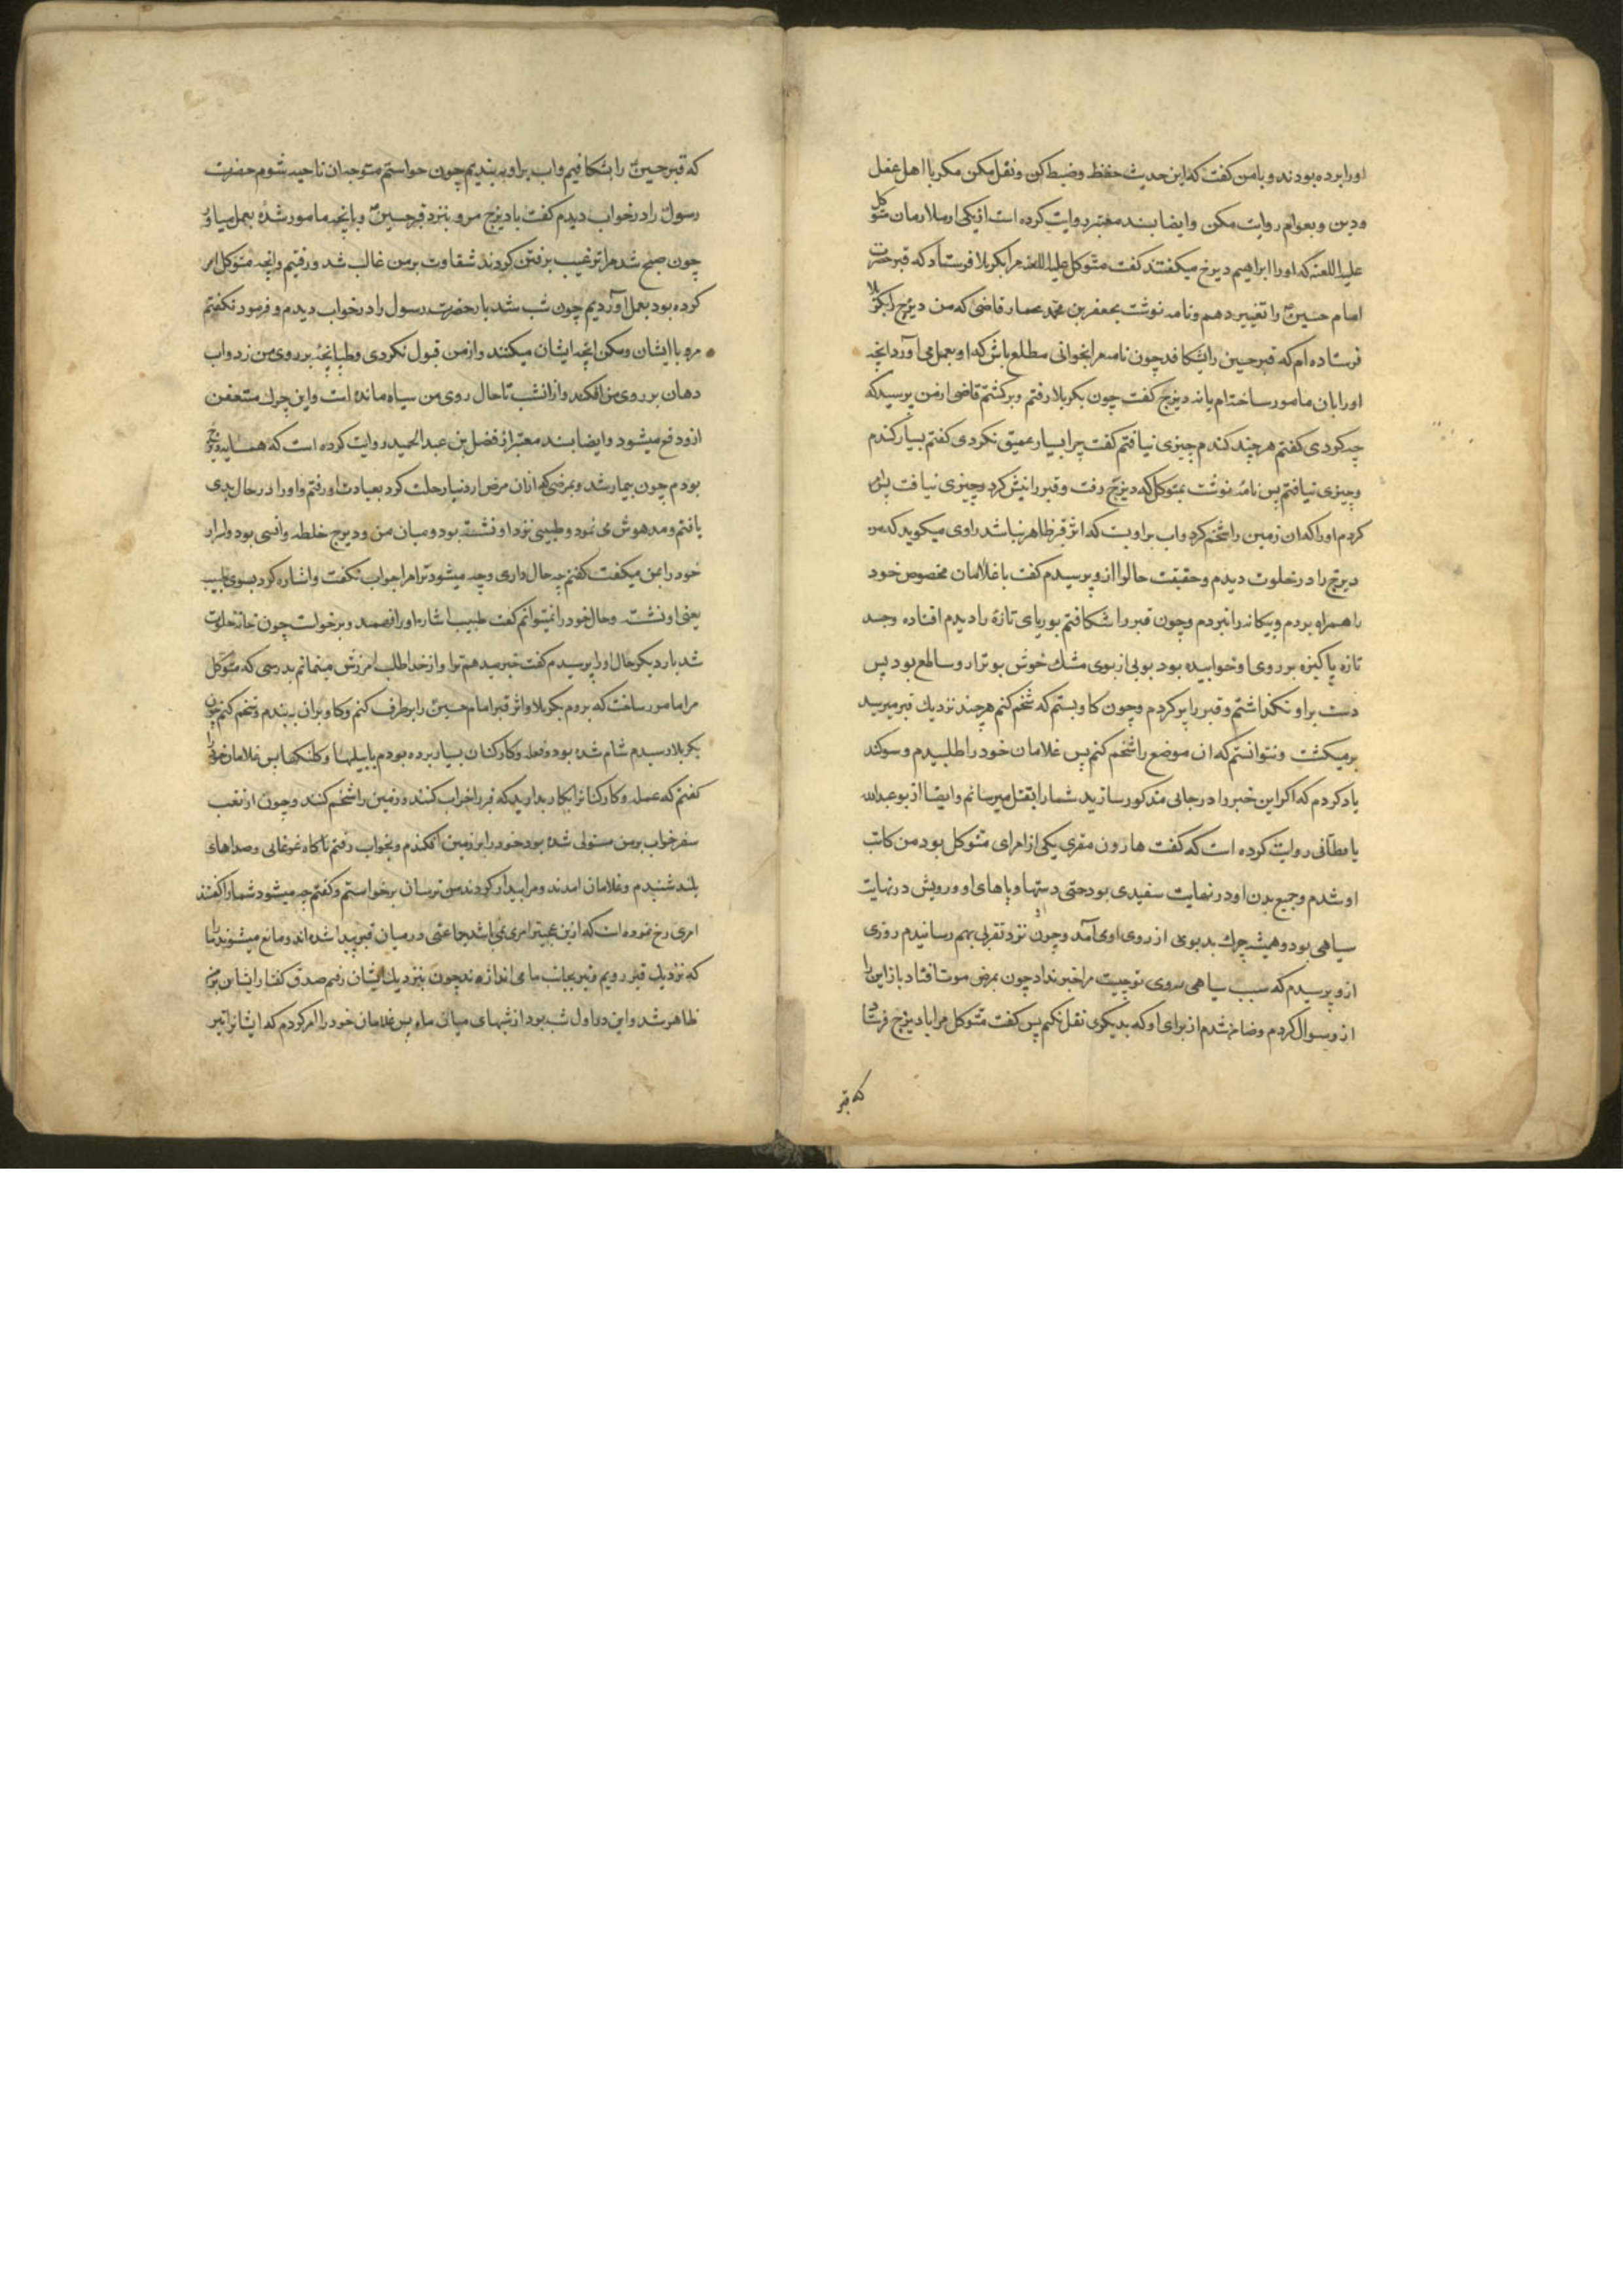 اورا برده بودند و با من کفت که این حدیث حفظ و ضبط کن و نقل مکن مکر با اهل عقل
و دین و بعوام روایت مکن وایضا بسند معتبر روایت کرده است از یکی از ملازمان متوکل
علیه اللعنه که اورا ابراهیم دیزج میکفتند کفت متوکل علیه اللعنه مرا بکربلا فرستاد که قبر حضرت
امام حسین را تغییر دهم و نامه نوشت بجعفر بن محمد عمار قاضی که من دیزج را بکربلا
فرستاده ام که قبر حسین را بشکافد چون نامه مرا بخوانی مطلع باش که او بعمل می آورد انچه
اورا بان مامور ساخته ام یا نه دیزج کفت چون بکربلا رفتم و برکشتم قاضی از من پرسید که
چه کردی کفتم هر چند کندم چیزی نیافتم کفت چرا بسیار عمیق نکردی کفتم بسیار کندم
و چیزی نیافتم پس نامه نوشت بمتوکل که دیزج رفت و قبر را نبش کرد و چیزی نیافت پس امر
کردم اورا که ان زمین را شخم کرد و اب بر او بست که اثر قبر ظاهر نباشد راوی میکوید که من
دیزج را در خلوت دیدم و حقیقت حال را از و پرسیدم کفت با غلامان مخصوص خود
را همراه بردم و بیکانه را نبردم و چون قبر را شکافتم بوریای تازه را دیدم افتاده وجسد
تازه پاکیزه بر روی او خوابیده بود بویی از بوی مشک خوش بو تر از و ساطع بود پس
دست بر او نکذاشتم و قبر را پر کردم و چون کاو بستم که شخم کنم هر چند نزدیک قبر میرسید
برمیکشت و نتوانستم که ان موضع را شخم کنم پس غلامان خود را طلبیدم و سوکند
یاد کردم که اکر این خبر را در جائی مذکور سازید شما را بقتل میرسانم وایضا از بو عبدالله
باقطانی روایت کرده است که کفت هارون مقری یکی از امرای متوکل بود من کاتب
او شدم و جمیع بدن او در نهایت سفیدی بود حتی دستها و پاهای او و رویش در نهایت
سیاهی بود و همیشه چرک بد بوی از روی او می آمد و چون نزد او تقربی بهم رسانیدم روزی
از و پرسیدم که سبب سیاهی روی تو چیست مرا خبر نداد چون بمرض موت افتاد باز این را
از و سوال کردم و ضامن شدم از برای او که بدیکری نقل نکنم پس کفت متوکل مرا با دیزج فرستاد
که قبر
که قبر حسین را بشکافیم و اب بر او ببندیم چون خواستم متوجه ان ناحیه شوم حضرت
رسول را در خواب دیدم کفت با دیزج مرو بنزد قبر حسین و بانچه مامور شده بعمل میاور
چون صبح شد مرا ترغیب برفتن کردند شقاوت بر من غالب شد و رفتیم و انچه متوکل امر
کرده بود بعمل اوردیم چون شب شد باز حضرت رسول را در خواب دیدم و فرمود نکفتم
مرو با ایشان و مکن انچه ایشان میکنند و از من قبول نکردی و طپانچه بر روی من زد و اب
دهان بر روی من افکند و از انشب تا حال روی من سیاه مانده است و این چرک متعفن
از و دفع میشود وایضا بسند معتبر از فضل بن عبد الحمید روایت کرده است که همسایه دیزج
بودم چون بیمار شد و بمرضی که از ان مرض از دنیا رحلت کرد بعیادت او رفتم و او را در حال بدی
یافتم و مدهوش می نمود و طبیبی نزد او نشسته بود و میان من و دیزج خلطه وانسی بود و اسرار
خود را بمن میکفت کفتم چه حال داری و چه میشود ترا مرا جواب نکفت و اشاره کرد بسوی طبیب
یعنی او نشسته وحال خود را نمیتوانم کفت طبیب اشاره او را فهمید و برخواست چون خانه خلوت
شد بار دیکر حال او را پرسیدم کفت خبر میدهم ترا و از خدا طلب امرزش مینمایم بدرستی که متوکل
مرا مامور ساخت که بروم بکربلا و اثر قبر امام حسین را برطرف کنم و کاو بران ببندم و شخم کنم چون
بکربلا رسیدم شام شده بود و فعله و کارکنان بسیار برده بودم با بیلها و کلنکها پس غلامان خود را
کفتم که عمله و کارکنانرا بکار بدارید که قبر را خراب کنند و زمین را شخم کنند و چون از تعب
سفر خواب بر من مستولی شده بود خود را بر زمین افکندم و بخواب رفتم ناکاه غوغایی و صداهای
بلند شنیدم و غلامان امدند و مرا بیدار کردند من ترسان برخواستم و کفتم چه میشود شما را کفتند
امری رخ نموده است که از این عجیبتر امری نمی باشد جماعتی در میان قبر پیدا شده اند و مانع میشوند ما را
که نزدیک قبر رویم و تیر بجانب ما می اندازند چون بنزدیک ایشان رفتم صدق کفتار ایشان بر من
ظاهر شد و این در اول شب بود از شبهای میان ماه پس غلامان خود را امر کردم که ایشانرا تیر